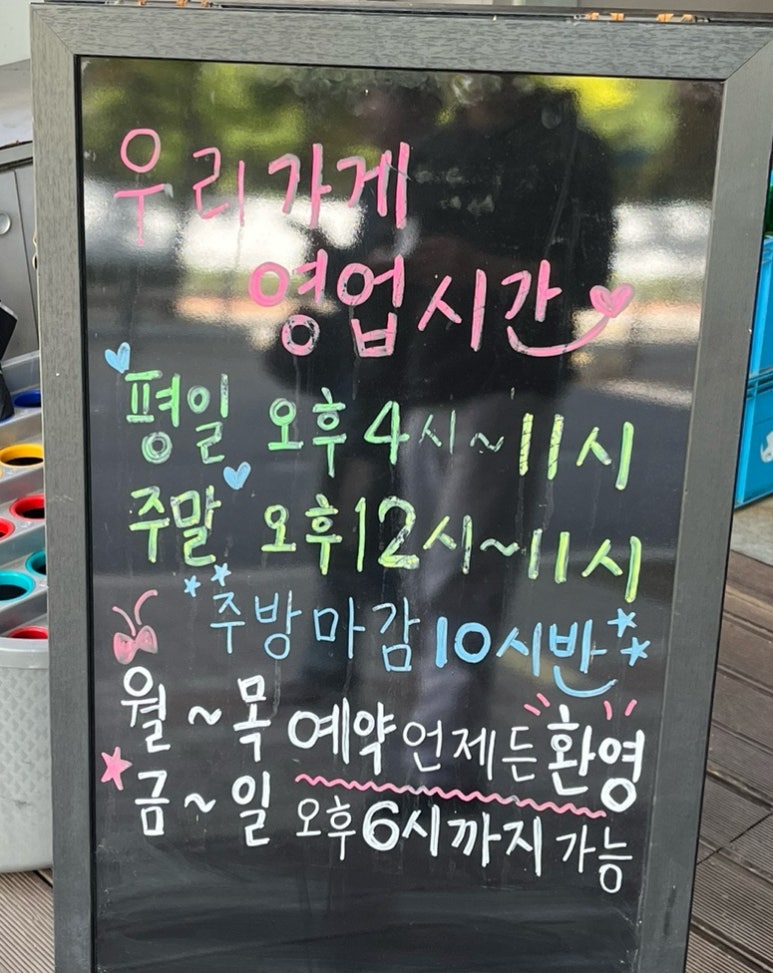 우리가게
영업시간
평일 오후 4시~11시
주말 오후 12시~11시
주방마감 10시반
월~목 예약 언제든 환영
금~일 오후 6시까지 가능